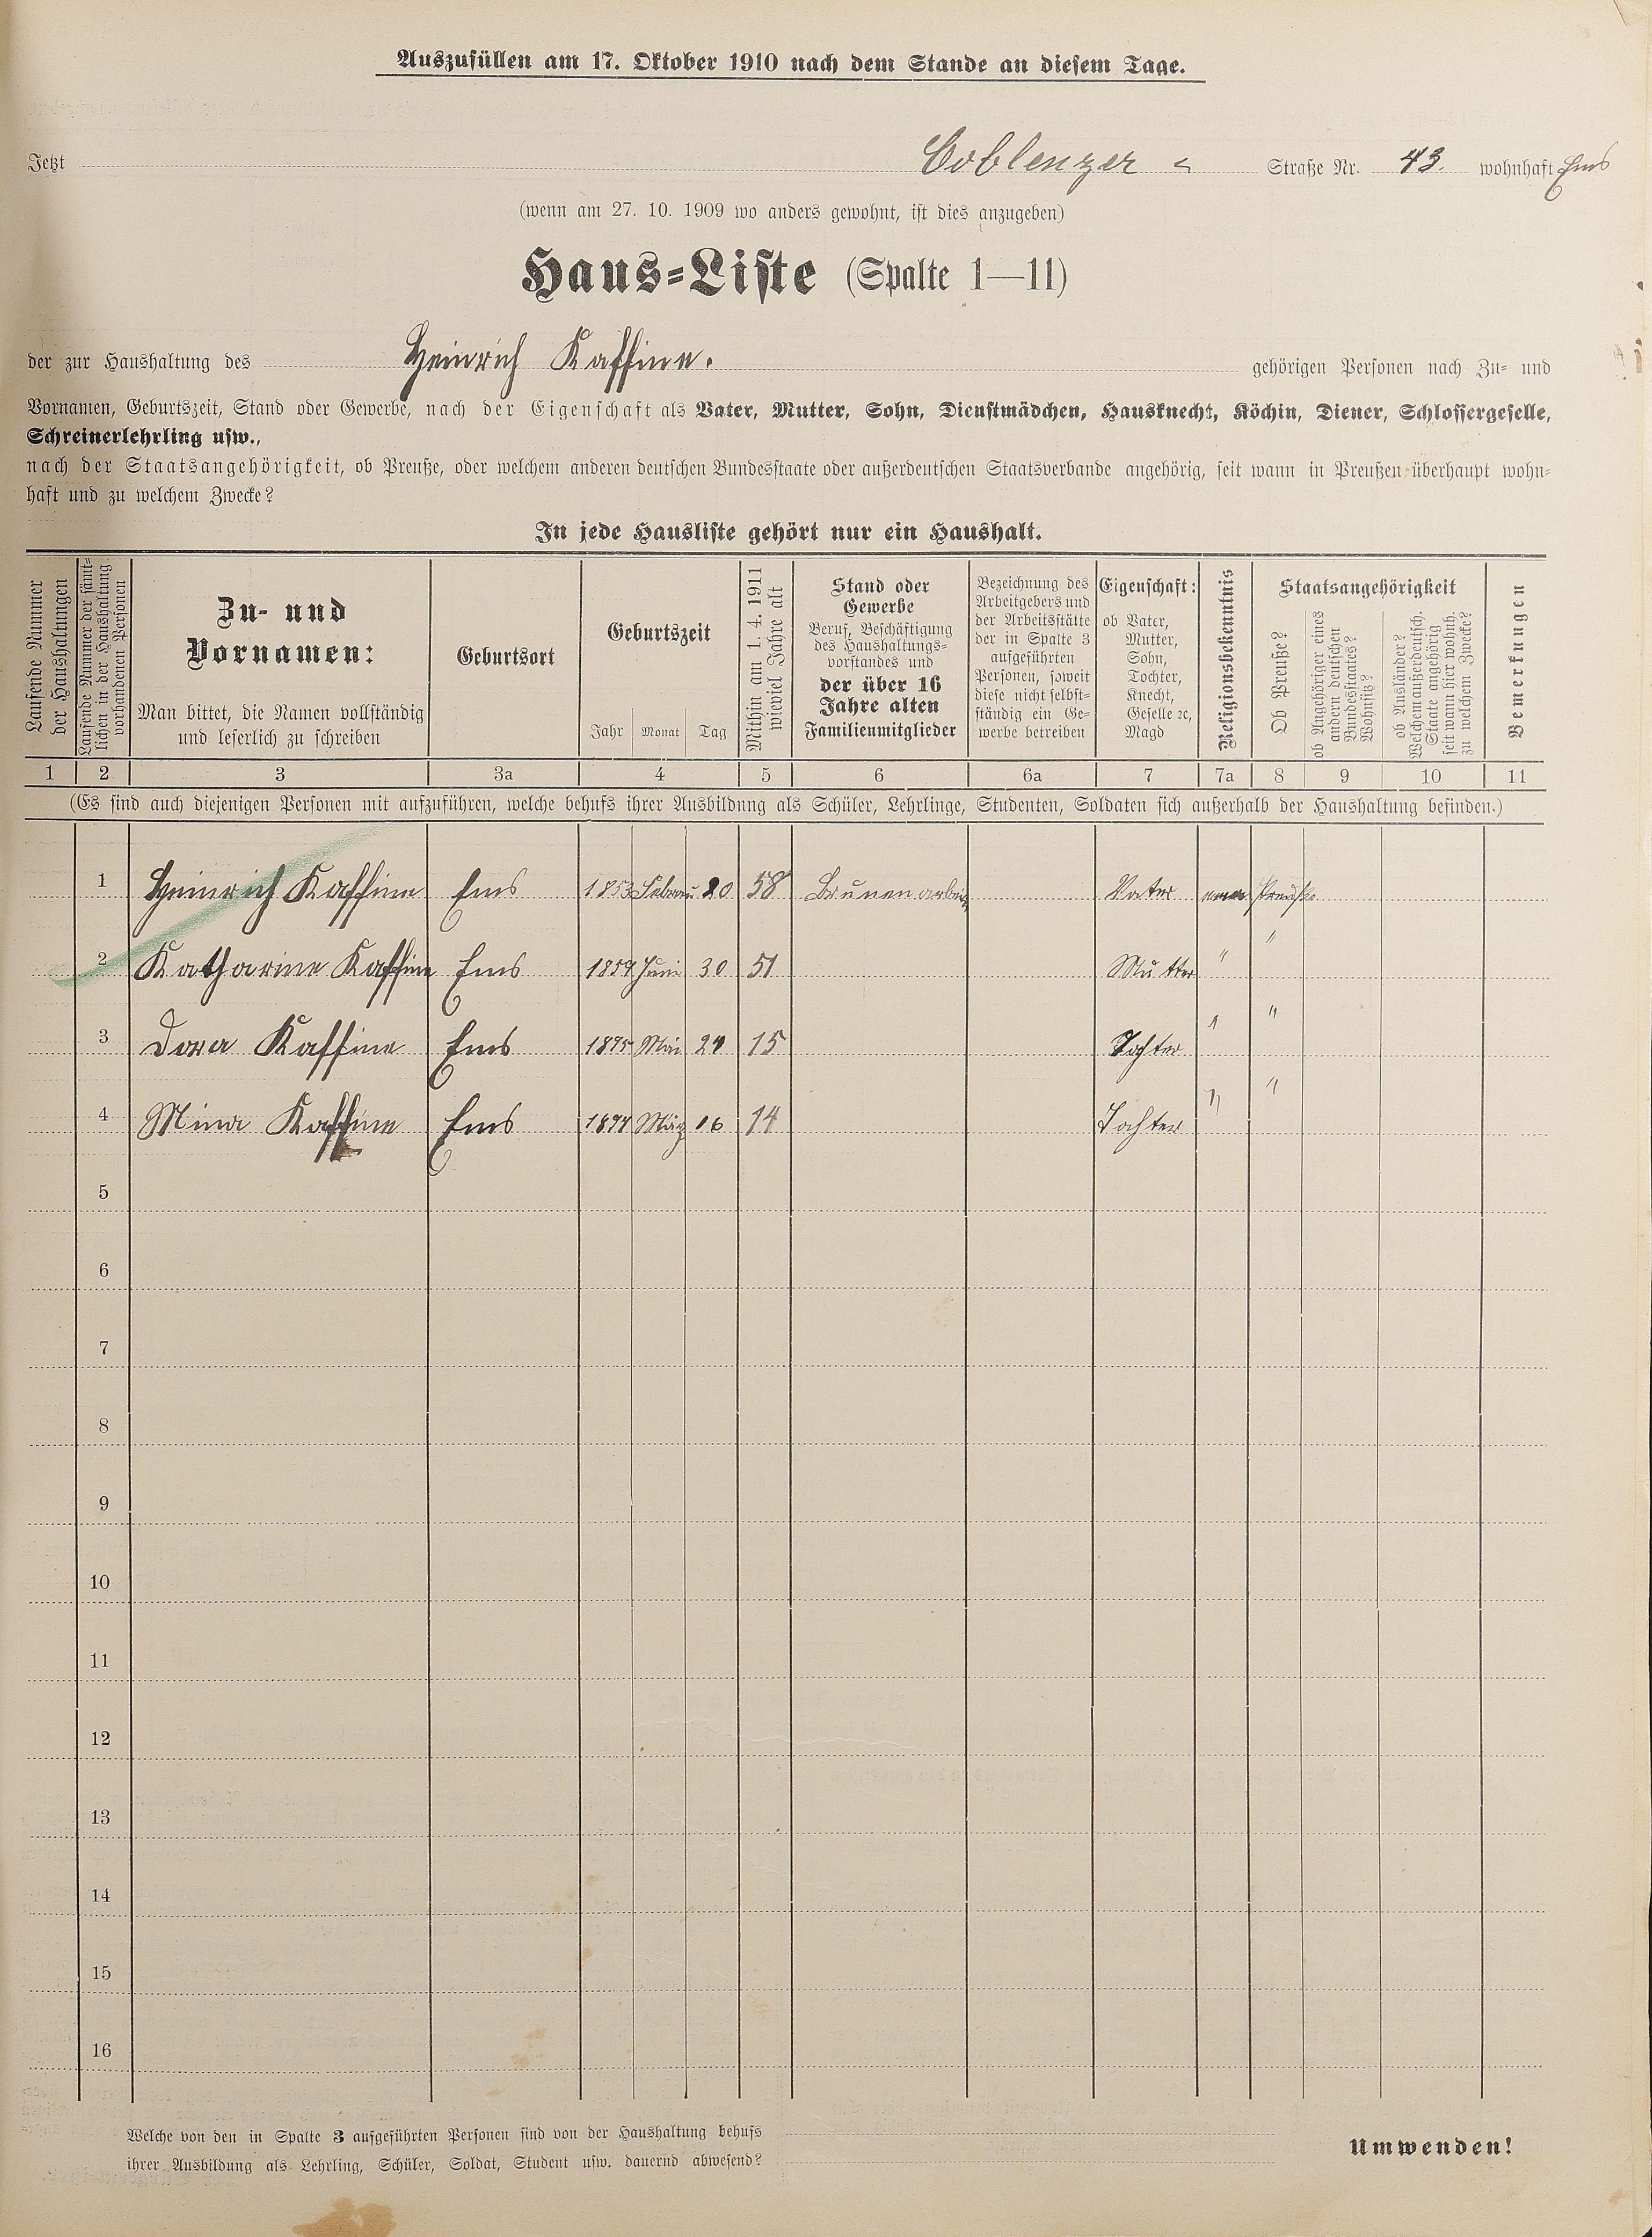 Auszufüllen am 17. Oktober 1910 nach dem Stande an diesem Tage.
Jetzt Coblenzer = Straße Nr. 43. wohnhaft Ems
(wenn am 27. 10. 1909 wo anders gewohnt, ist dies anzugeben)
Haus=Liste (Spalte 1—11)
der zur Haushaltung des Heinrich Kaffine. gehörigen Personen nach Zu= und
Vornamen, Geburtszeit, Stand oder Gewerbe, nach der Eigenschaft als Vater, Mutter, Sohn, Dienstmädchen, Hausknecht, Köchin, Diener, Schlossergeselle,
Schreinerlehrling usw.,
nach der Staatsangehörigkeit, ob Preuße, oder welchem anderen deutschen Bundesstaate oder außerdeutschen Staatsverbande angehörig, seit wann in Preußen überhaupt wohn=
haft und zu welchem Zwecke?
In jede Hausliste gehört nur ein Haushalt.
Laufende Nummer
der Haushaltungen
Laufende Nummer der sämt=
lichen in der Haushaltung
vorhandenen Personen
Zu- und
Vornamen:
Man bittet, die Namen vollständig
und leserlich zu schreiben
Geburtsort
Geburtszeit
Jahr Monat Tag
Mithin am 1. 4. 1911
wieviel Jahre alt
Stand oder
Gewerbe
Beruf, Beschäftigung
des Haushaltungs=
vorstandes und
der über 16
Jahre alten
Familienmitglieder
Bezeichnung des
Arbeitgebers und
der Arbeitsstätte
der in Spalte 3
aufgeführten
Personen, soweit
diese nicht selbst=
ständig ein Ge=
werbe betreiben
Eigenschaft:
ob Vater,
Mutter,
Sohn,
Tochter,
Knecht,
Geselle ꝛc,
Magd
Religionsbekenntnis
Staatsangehörigkeit
Ob Preuße?
ob Angehöriger eines
andern deutschen
Bundesstaates?
Wohnsitz?
ob Ausländer?
Welchem außerdeutsch.
Staate angehörig
seit wann hier wohnh.
zu welchem Zwecke?
Bemerkungen
1 2 3 3a 4 5 6 6a 7 7a 8 9 10 11
(Es sind auch diejenigen Personen mit aufzuführen, welche behufs ihrer Ausbildung als Schüler, Lehrlinge, Studenten, Soldaten sich außerhalb der Haushaltung befinden.)
1 Heinrich Kaffine Ems 1853 Februar 20 58 Brunenarbeit Vater Preuße
2 Katharine Kaffine Ems 1859 Juni 30 51 Mutter " "
3 Dora Kaffine Ems 1895 Mai 24 15 Tochter " "
4 Mina Kaffine Ems 1897 März 16 14 Tochter " "
5
6
7
8
9
10
11
12
13
14
15
16
Welche von den in Spalte 3 aufgeführten Personen sind von der Haushaltung behufs
ihrer Ausbildung als Lehrling, Schüler, Soldat, Student usw. dauernd abwesend?
Umwenden!